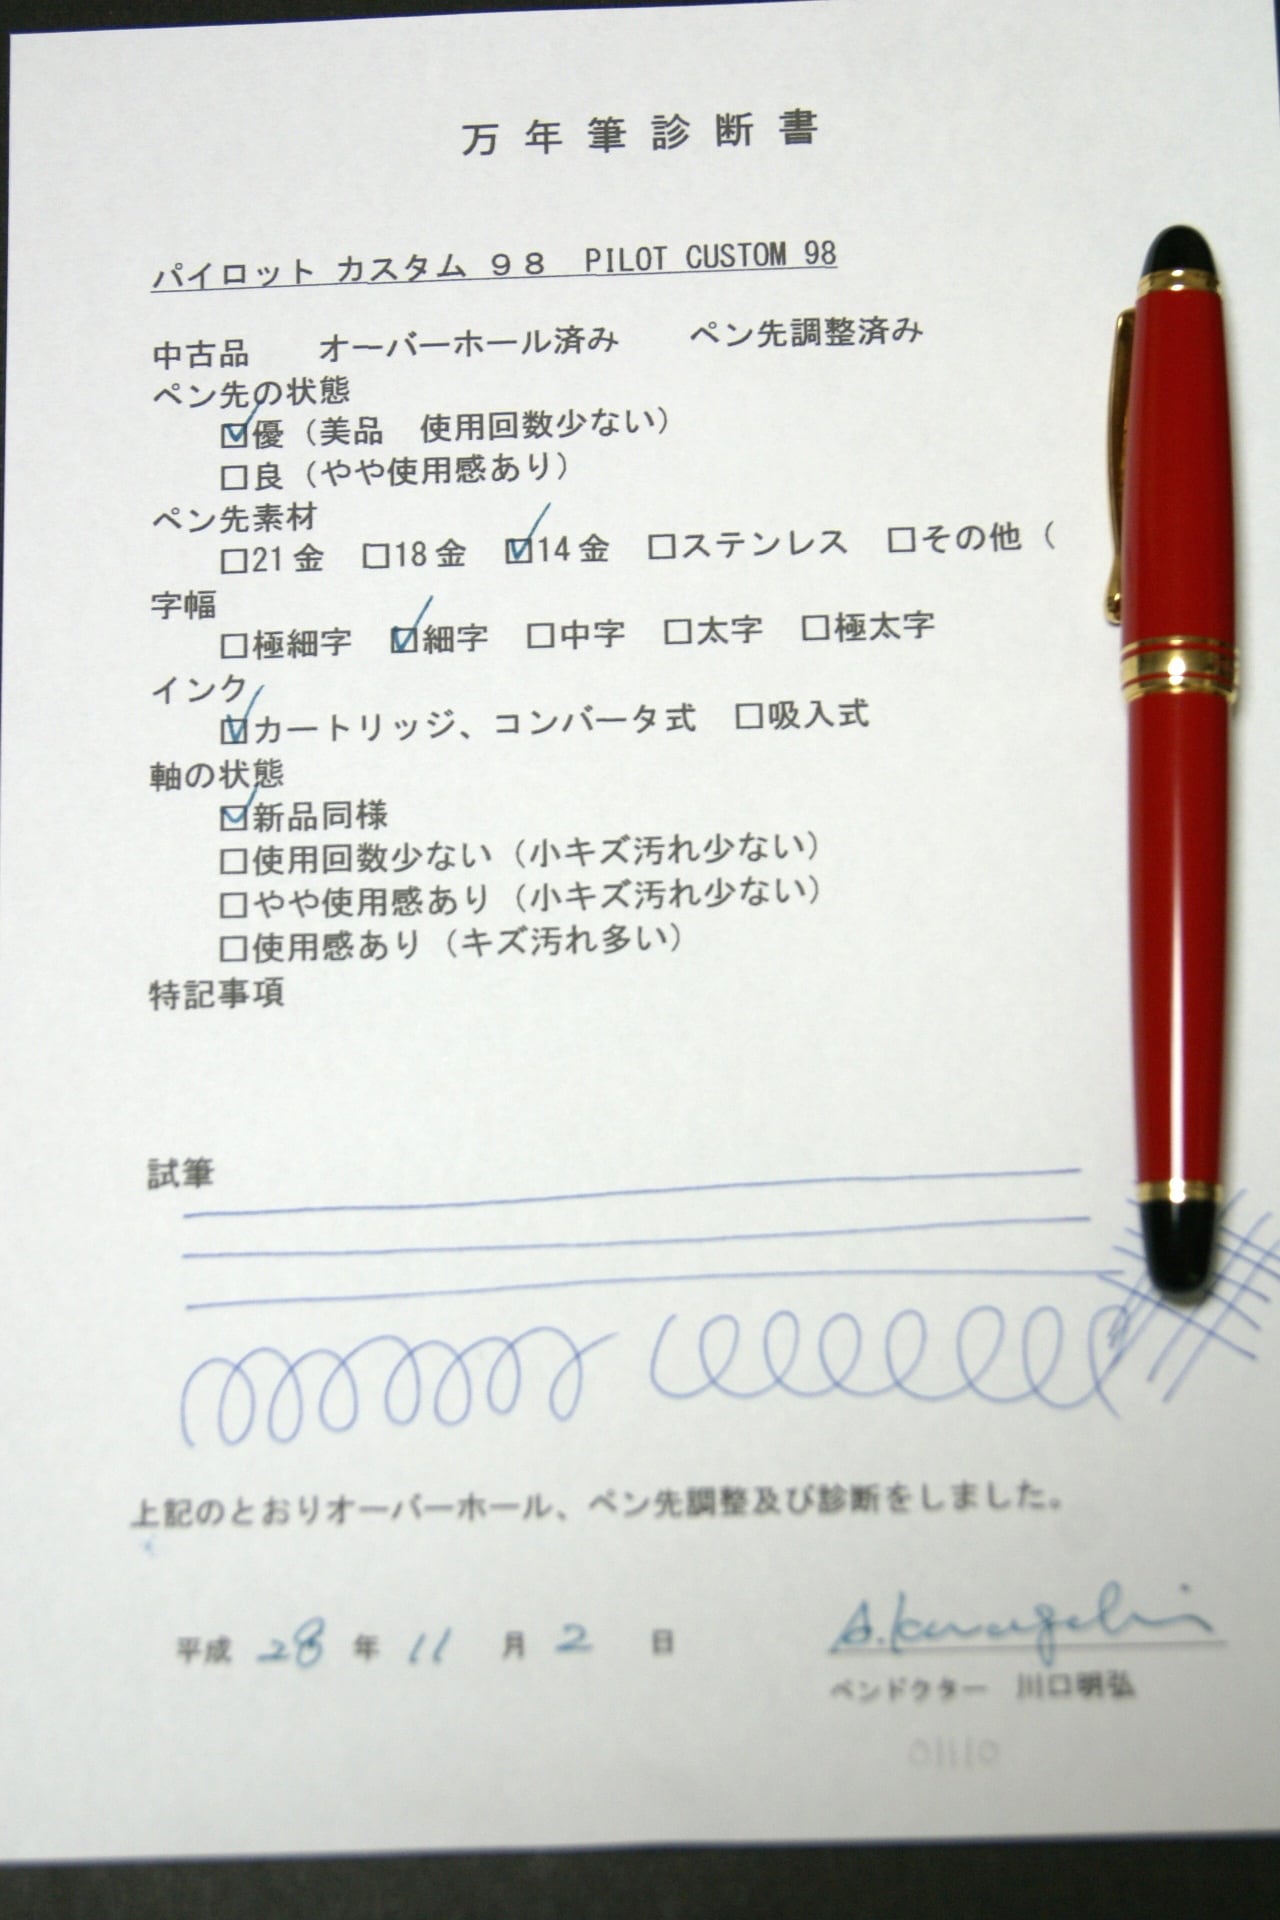 万年筆診断書
パイロット カスタム ９８　PILOT CUSTOM 98
中古品　　オーバーホール済み　　ペン先調整済み
ペン先の状態
☑優（美品　使用回数少ない）
□良（やや使用感あり）
ペン先素材
□21金　□18金　☑14金　□ステンレス　□その他（
字幅
□極細字　☑細字　□中字　□太字　□極太字
インク
☑カートリッジ、コンバータ式　□吸入式
軸の状態
☑新品同様
□使用回数少ない（小キズ汚れ少ない）
□やや使用感あり（小キズ汚れ少ない）
□使用感あり（キズ汚れ多い）
特記事項
試筆
上記のとおりオーバーホール、ペン先調整及び診断をしました。
平成 28 年 11 月 2 日
A.Kawaguchi
ペンドクター　川口明弘